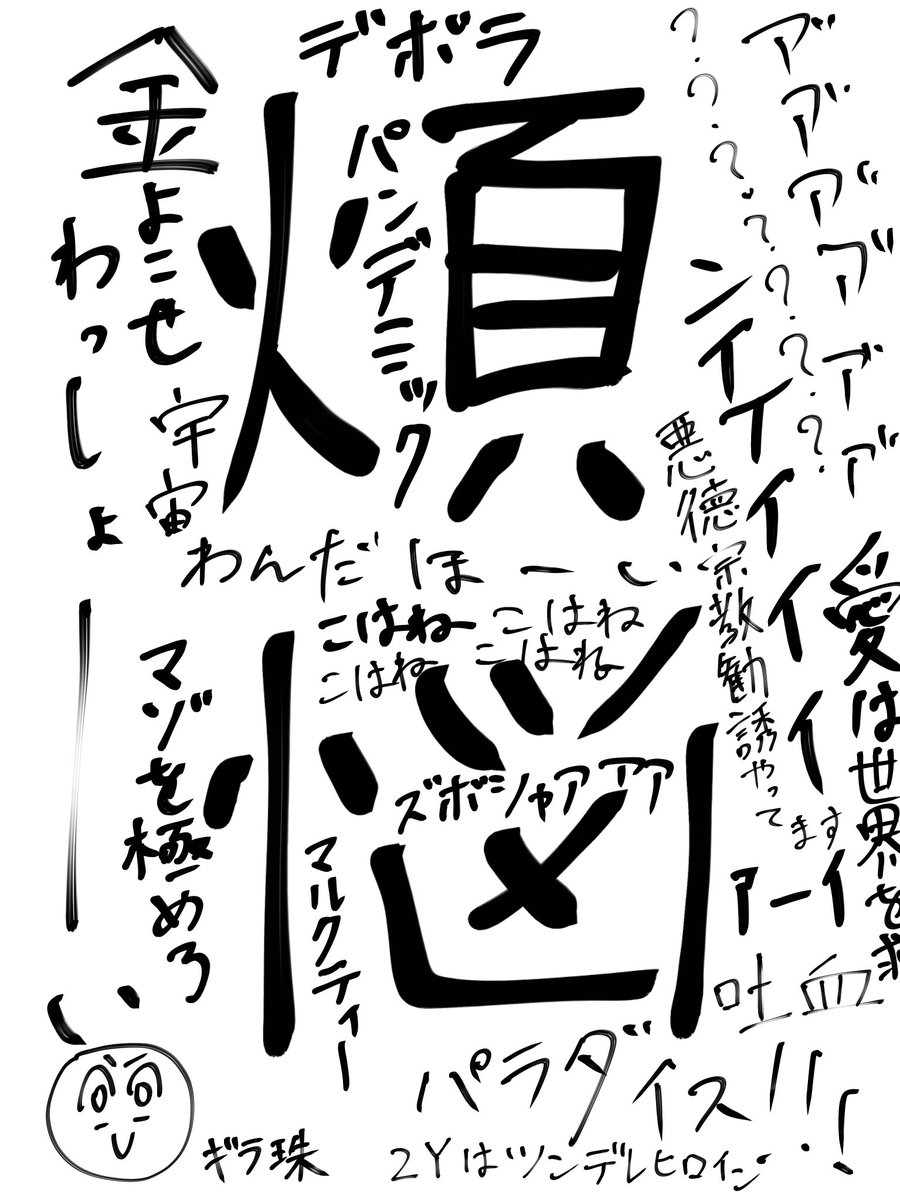 煩悩
デボラ
パンデミック
ア゛ア゛ア゛ア゛ア゛ア゛
?.?.?.?.?.?.?
ンイイイイイイーァ
金よこせ
わっしょーい
宇宙
わんだほーい
こはね こはね
こはね こはね
悪徳宗教勧誘やってます
愛は世界を救
マゾを極めろ
ズボシャアアア
マルクティー
吐血
パラダイス!!!
ギラ珠
2Yはツンデレヒロイン